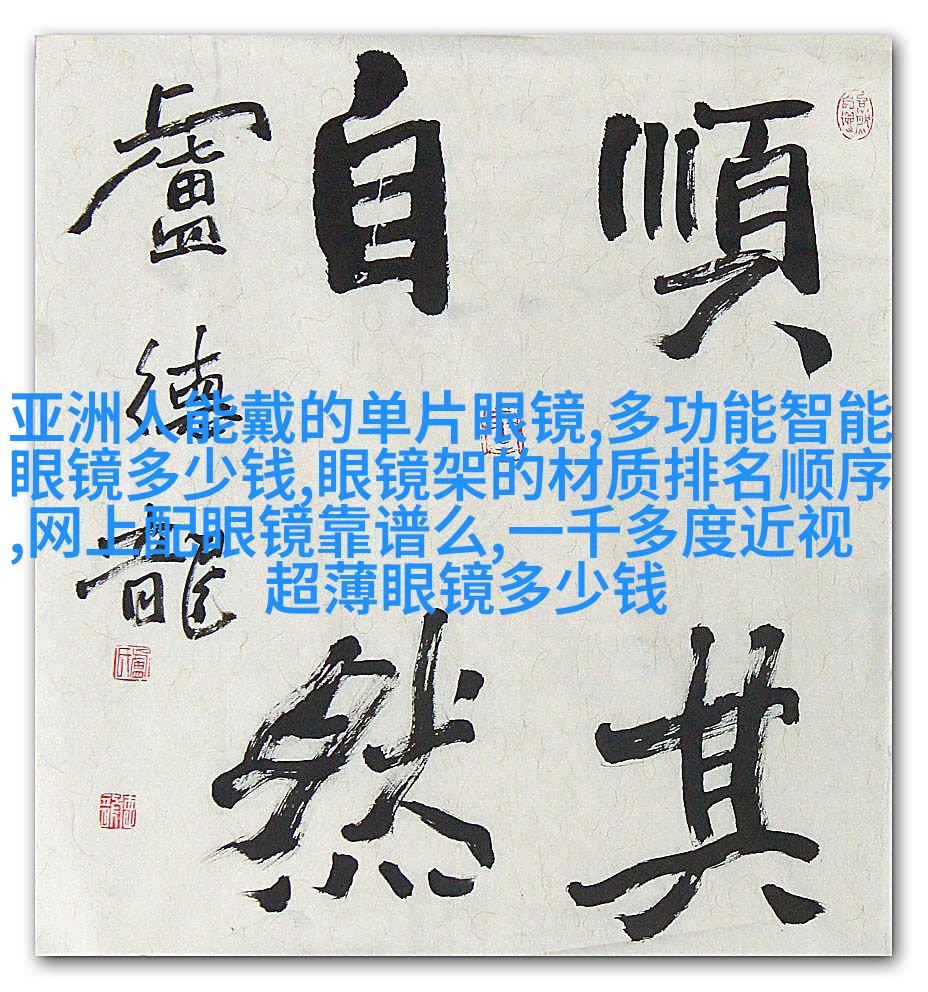 順其
自然
盧德龍
亚洲人能戴的单片眼镜,多功能智能
眼镜多少钱,眼镜架的材质排名顺序
,网上配眼镜靠谱么,一千多度近视
超薄眼镜多少钱